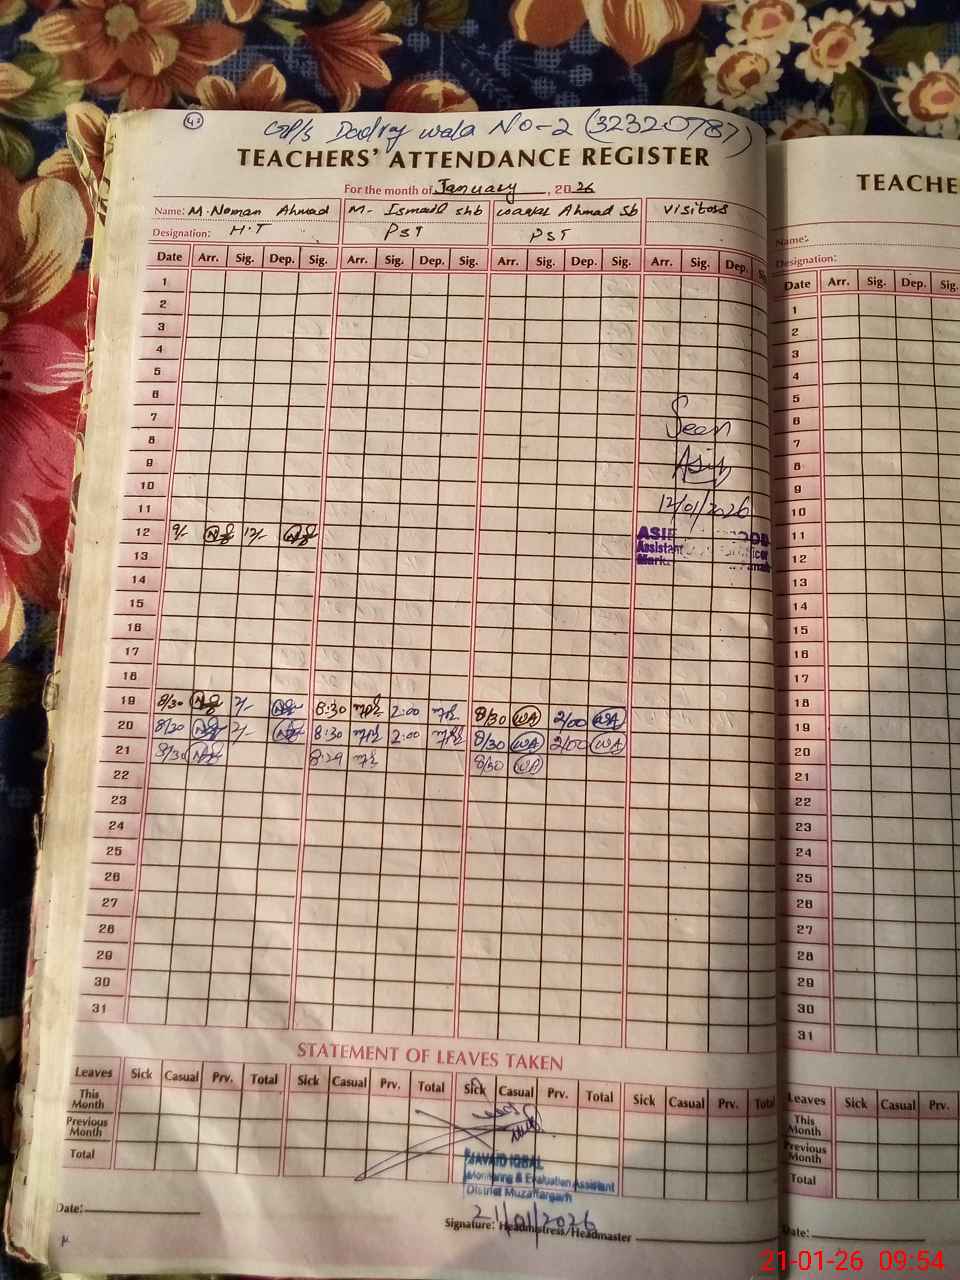 42
No-2 (32320787)
TEACHERS' ATTENDANCE REGISTER
For the month of January, 2026
Name: M. Noman Ahmad M- Ismail shb Ahmad Sb Visitors
Designation: H.T PST PST
Date Arr. Sig. Dep. Sig. Arr. Sig. Dep. Sig. Arr. Sig. Dep. Sig. Arr. Sig. Dep.
1
2
3
4
5
6
7
Seen
8
9
Asif
10
11
12/01/2026
12 9/- 12/-
Assistant
13
14
15
16
17
18
19 8/30 2/- 8:30 2:00 8/30 WA 2/00 WA
20 8/30 2/- 8:30 2:00 8/30 WA 2/00 WA
21 8/30 8:29 8/30 WA
22
23
24
25
26
27
28
29
30
31
STATEMENT OF LEAVES TAKEN
Leaves Sick Casual Prv. Total Sick Casual Prv. Total Sick Casual Prv. Total Sick Casual Prv. Total
This Month
Previous Month
Total
JAVAID IQBAL
Monitoring & Evaluation Assistant
District Muzaffargarh
21/01/2026
Date:
Signature: Headmistress/Headmaster
TEACHE
Name:
Designation:
Date Arr. Sig. Dep. Sig.
1
2
3
4
5
6
7
8
9
10
11
12
13
14
15
16
17
18
19
20
21
22
23
24
25
26
27
28
29
30
31
Leaves Sick Casual Prv.
This Month
Previous Month
Total
Date:
21-01-26 09:54